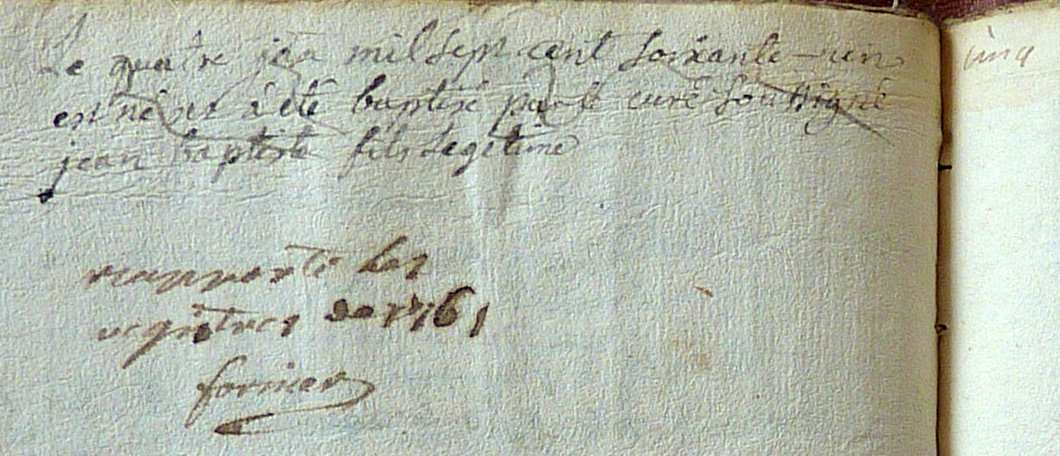 Le quatre jan milsept cent soixante-un
est né et à été baptisé par le curé soussigné
jean baptiste fils legitime
rapporté les
registres de 1761